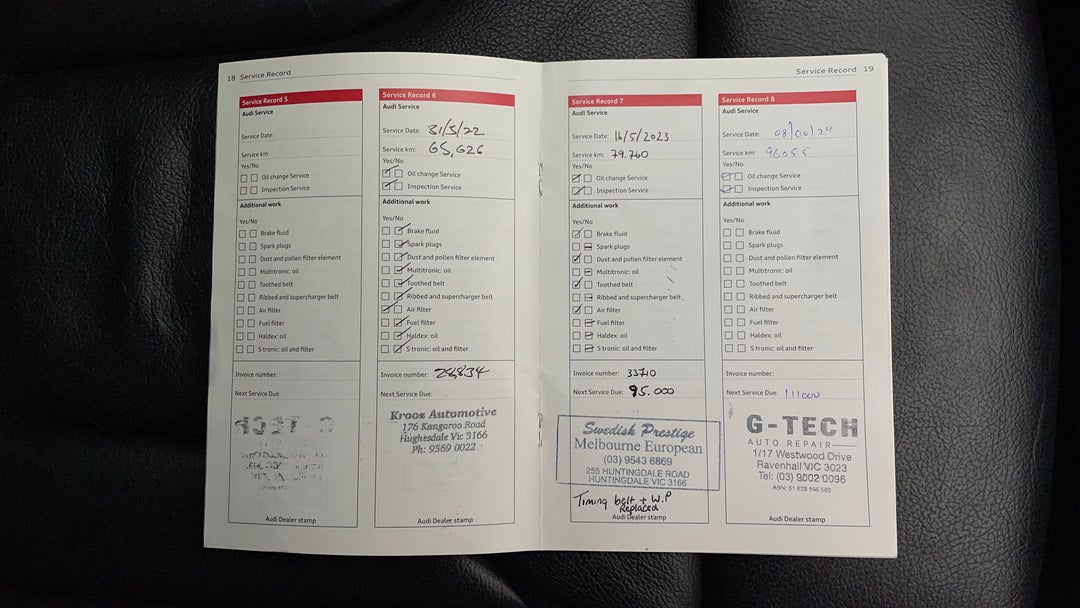 18 Service Record
Service Record 5
Audi Service
Service Date:
Service km:
Yes/No
Oil change Service
Inspection Service
Additional work
Yes/No
Brake fluid
Spark plugs
Dust and pollen filter element
Multitronic: oil
Toothed belt
Ribbed and supercharger belt
Air filter
Fuel filter
Haldex: oil
S tronic: oil and filter
Invoice number:
Next Service Due:
Audi Dealer stamp
Service Record 6
Audi Service
Service Date: 31/5/22
Service km: 65,626
Yes/No
Oil change Service
Inspection Service
Additional work
Yes/No
Brake fluid
Spark plugs
Dust and pollen filter element
Multitronic: oil
Toothed belt
Ribbed and supercharger belt
Air filter
Fuel filter
Haldex: oil
S tronic: oil and filter
Invoice number: 28834
Next Service Due:
Krooz Automotive
176 Kangaroo Road
Hughesdale Vic 3166
Ph: 9569 0022
Audi Dealer stamp
Service Record 19
Service Record 7
Audi Service
Service Date: 16/5/2023
Service km: 79.760
Yes/No
Oil change Service
Inspection Service
Additional work
Yes/No
Brake fluid
Spark plugs
Dust and pollen filter element
Multitronic: oil
Toothed belt
Ribbed and supercharger belt
Air filter
Fuel filter
Haldex: oil
S tronic: oil and filter
Invoice number: 33710
Next Service Due: 95.000
Swedish Prestige
Melbourne European
(03) 9543 6869
255 HUNTINGDALE ROAD
HUNTINGDALE VIC 3166
Timing belt + W.P
Replaced
Audi Dealer stamp
Service Record 8
Audi Service
Service Date: 03/06/24
Service km: 96055
Yes/No
Oil change Service
Inspection Service
Additional work
Yes/No
Brake fluid
Spark plugs
Dust and pollen filter element
Multitronic: oil
Toothed belt
Ribbed and supercharger belt
Air filter
Fuel filter
Haldex: oil
S tronic: oil and filter
Invoice number:
Next Service Due: 111000
G-TECH
AUTO REPAIR
1/17 Westwood Drive
Ravenhall VIC 3023
Tel: (03) 9002 0096
Audi Dealer stamp